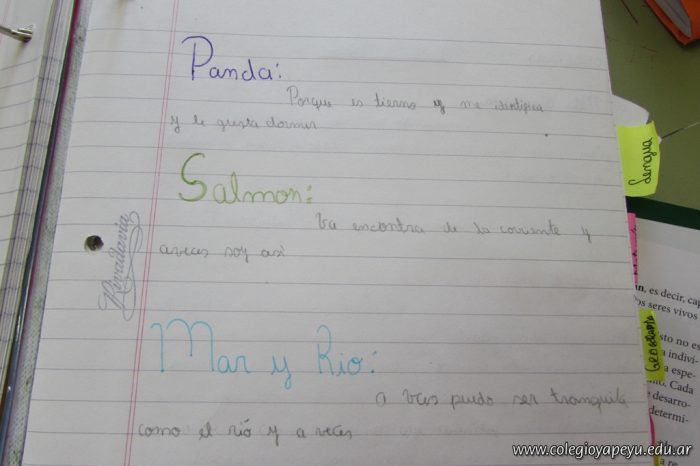 Panda:
Porque es tierno y me identifica
y le gusta dormir
Salmon:
Va encontra de la corriente y
aveces soy así
Rivadavia
Mar y Rio:
a veces puedo ser tranquila
como el río y a veces
Lengua
Geografía
n, es decir, cap
os seres vivos
sto no es
a indivi-
a espe-
Cada
desarro-
determi-
www.colegioyapeyu.edu.ar